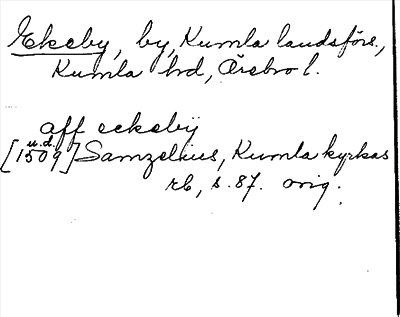 Ekeby, by, Kumla landsförs.,
Kumla hd, Örebro l.
aff eckeby
u.d.
[1509] Samzelius, Kumla kyrkas
rb, s. 87. orig.